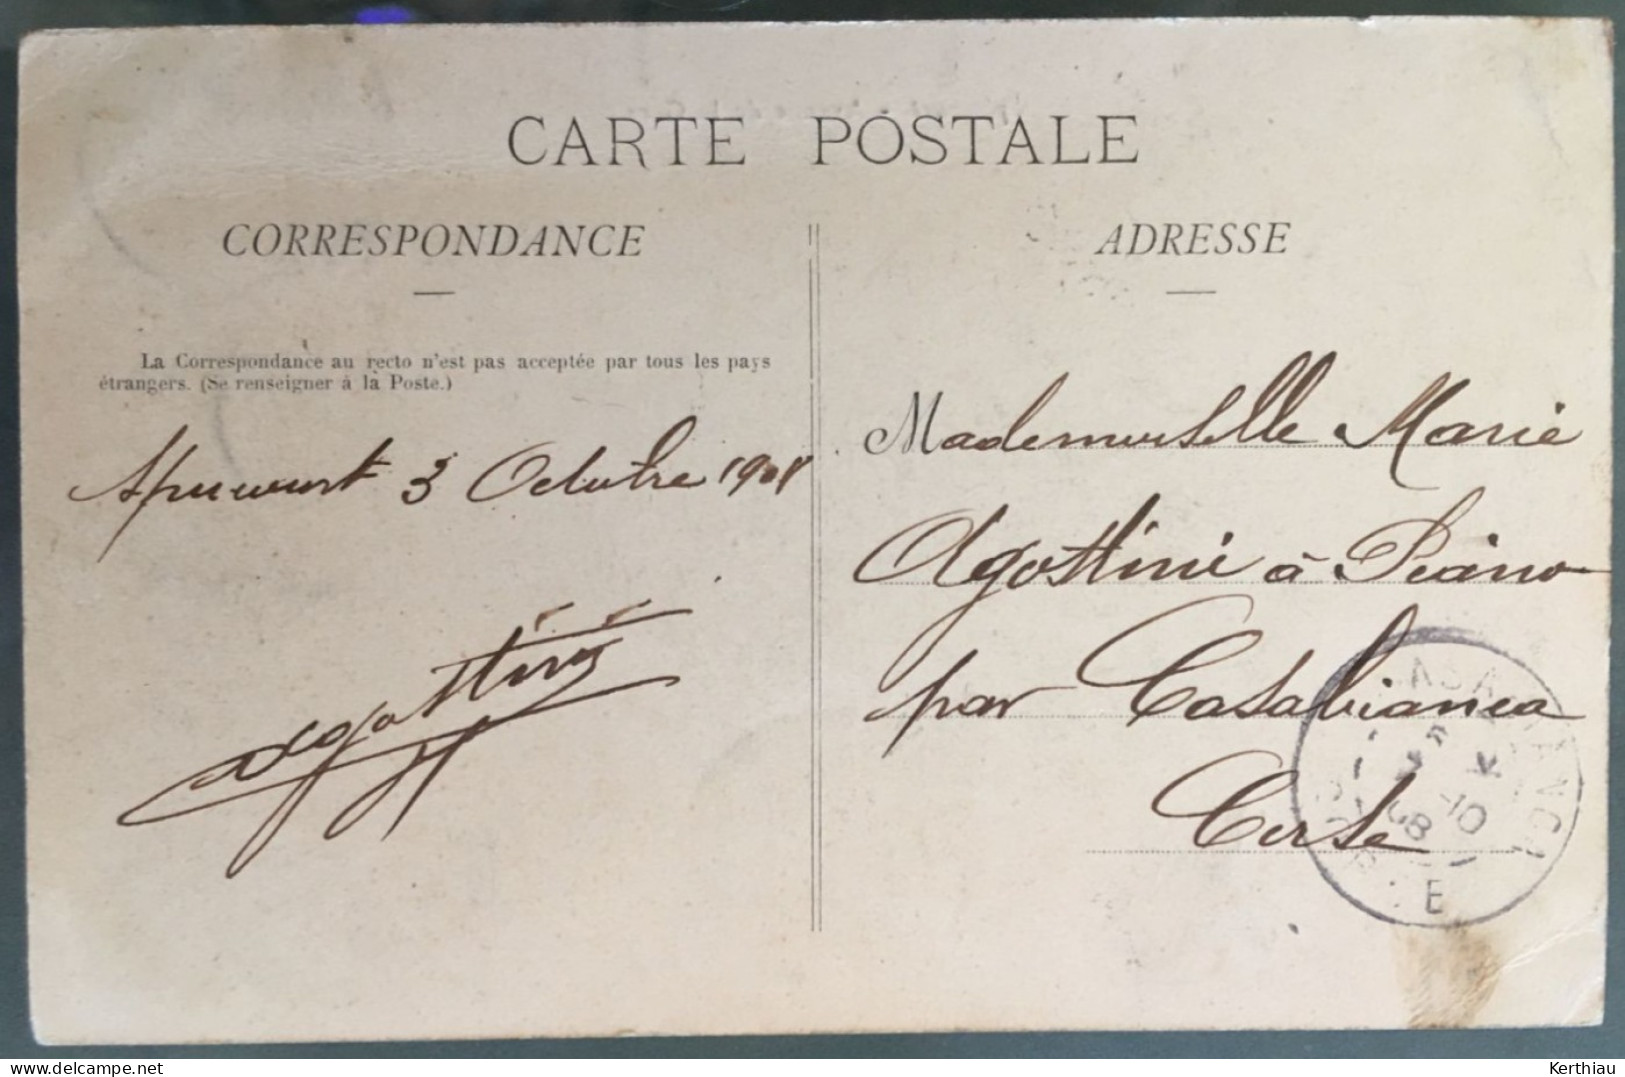 CARTE POSTALE
CORRESPONDANCE
La Correspondance au recto n'est pas acceptée par tous les pays
étrangers. (Se renseigner à la Poste.)
3 Octobre 1908
Agostini
ADRESSE
Mademoiselle Marie
Agostini à Piano
par Casabianca
Corse
CASABIANCA
10
08
CORSE
Kerthiau